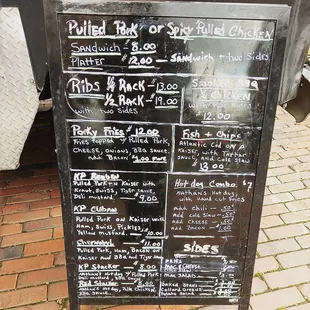 Pulled Pork or Spicy Pulled Chicken
Sandwich - 8.00
Platter 12.00 Sandwich + two sides
Ribs 1/4 Rack - 13.00
1/2 Rack - 19.00
with two sides
Smoked BBQ
Chicken
12.00
Porky Fries $12.00
Fries topped w/ Pulled Pork,
Cheese, Onions, BBQ Sauce
add Bacon
Fish + Chips
Atlantic Cod on A
Kaiser with Tartar
Sauce, and Cole Slaw
13.00
KP Reuben
Pulled Pork on Kaiser with
Kraut, Swiss, Tiger Sauce
Deli mustard
9.00
KP Cubano
Pulled Pork on Kaiser with
Ham, Swiss, Pickles
Yellow mustard. 10.00
Hot dog Combo $7
Nathan's Hot dog
with hand cut fries
Add Chili - .50
Add Cole slaw - .50
Add Cheese - .50
Add Bacon -
Chernobyl 11.00
Pulled Pork, Ham, Bacon on
Kaiser and BBQ and Tiger
KP Stacker 8.00
Nathan's Hot dog w/ Pulled Pork
BBQ Sauce
Red Stacker 8.00
Nathan's Hot dog, Pulled Chicken
BBQ Sauce
Sides
Fries
Mac & Cheese
Cole Slaw
Baked Beans
Collard Greens
Potato Salad